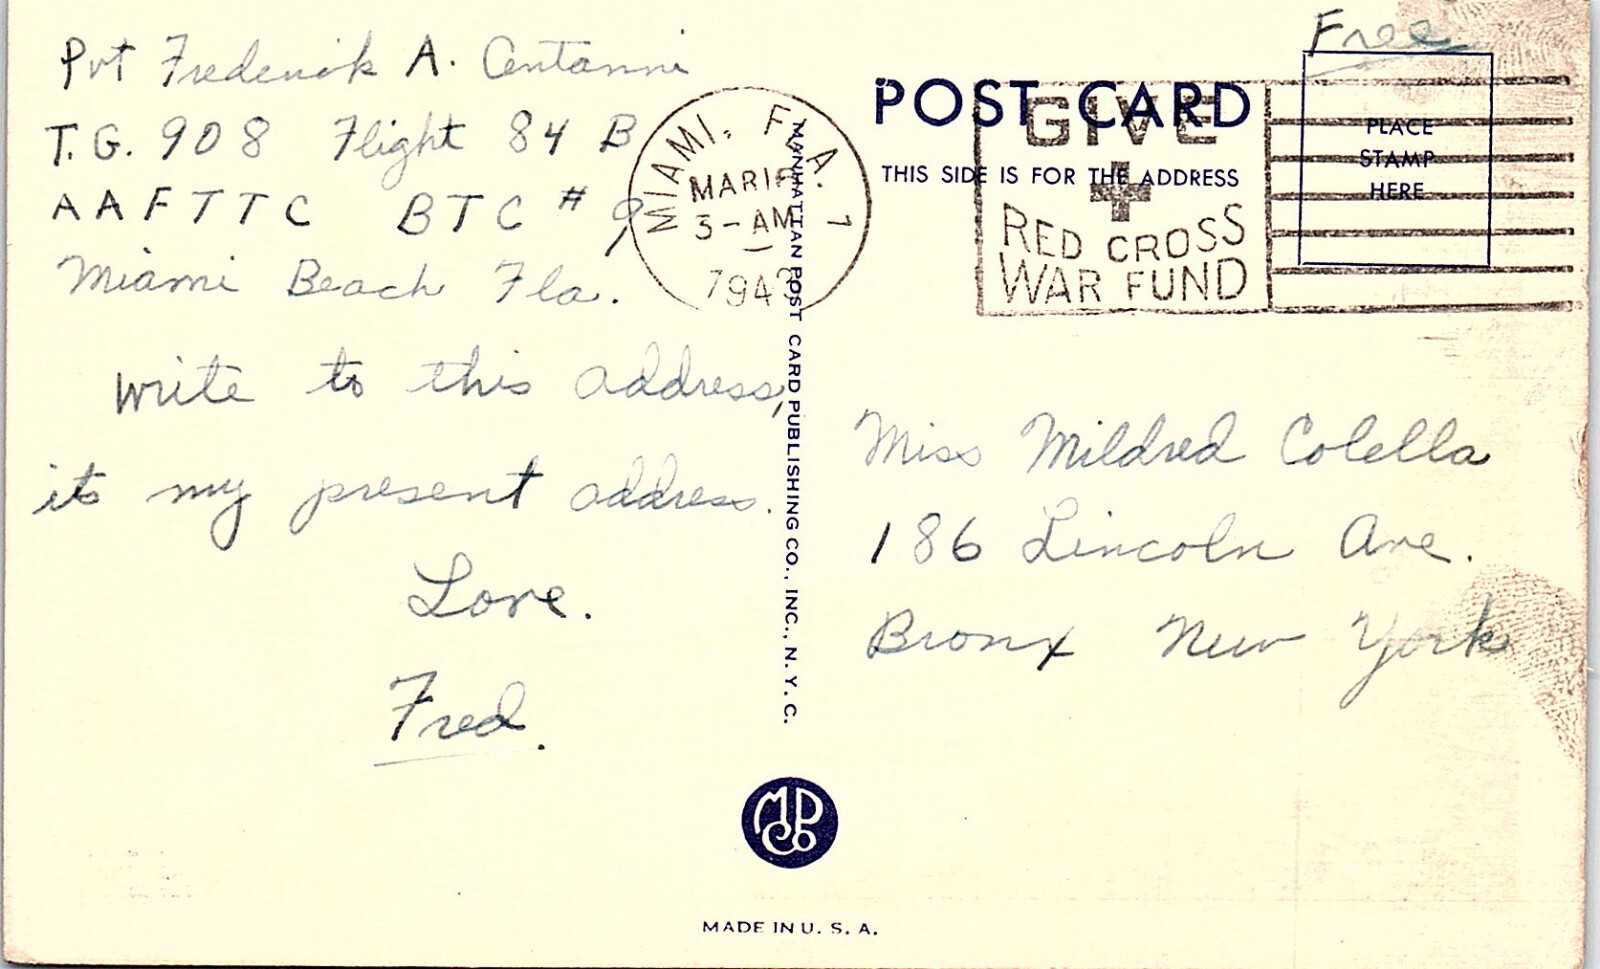 Pvt Frederick A. Centanni
T.G. 908 Flight 84 B
AAFTTC BTC # 9,
Miami Beach Fla.
write to this address,
its my present address.
Love.
Fred.
MIAMI, FLA. 1
MAR
3-AM
1943
MANHATTAN POST CARD PUBLISHING CO., INC., N.Y.C.
POST CARD
THIS SIDE IS FOR THE ADDRESS
GIVE
RED CROSS
WAR FUND
Free
PLACE
STAMP
HERE
Miss Mildred Colella
186 Lincoln Ave.
Bronx New York
MPCo
MADE IN U.S.A.